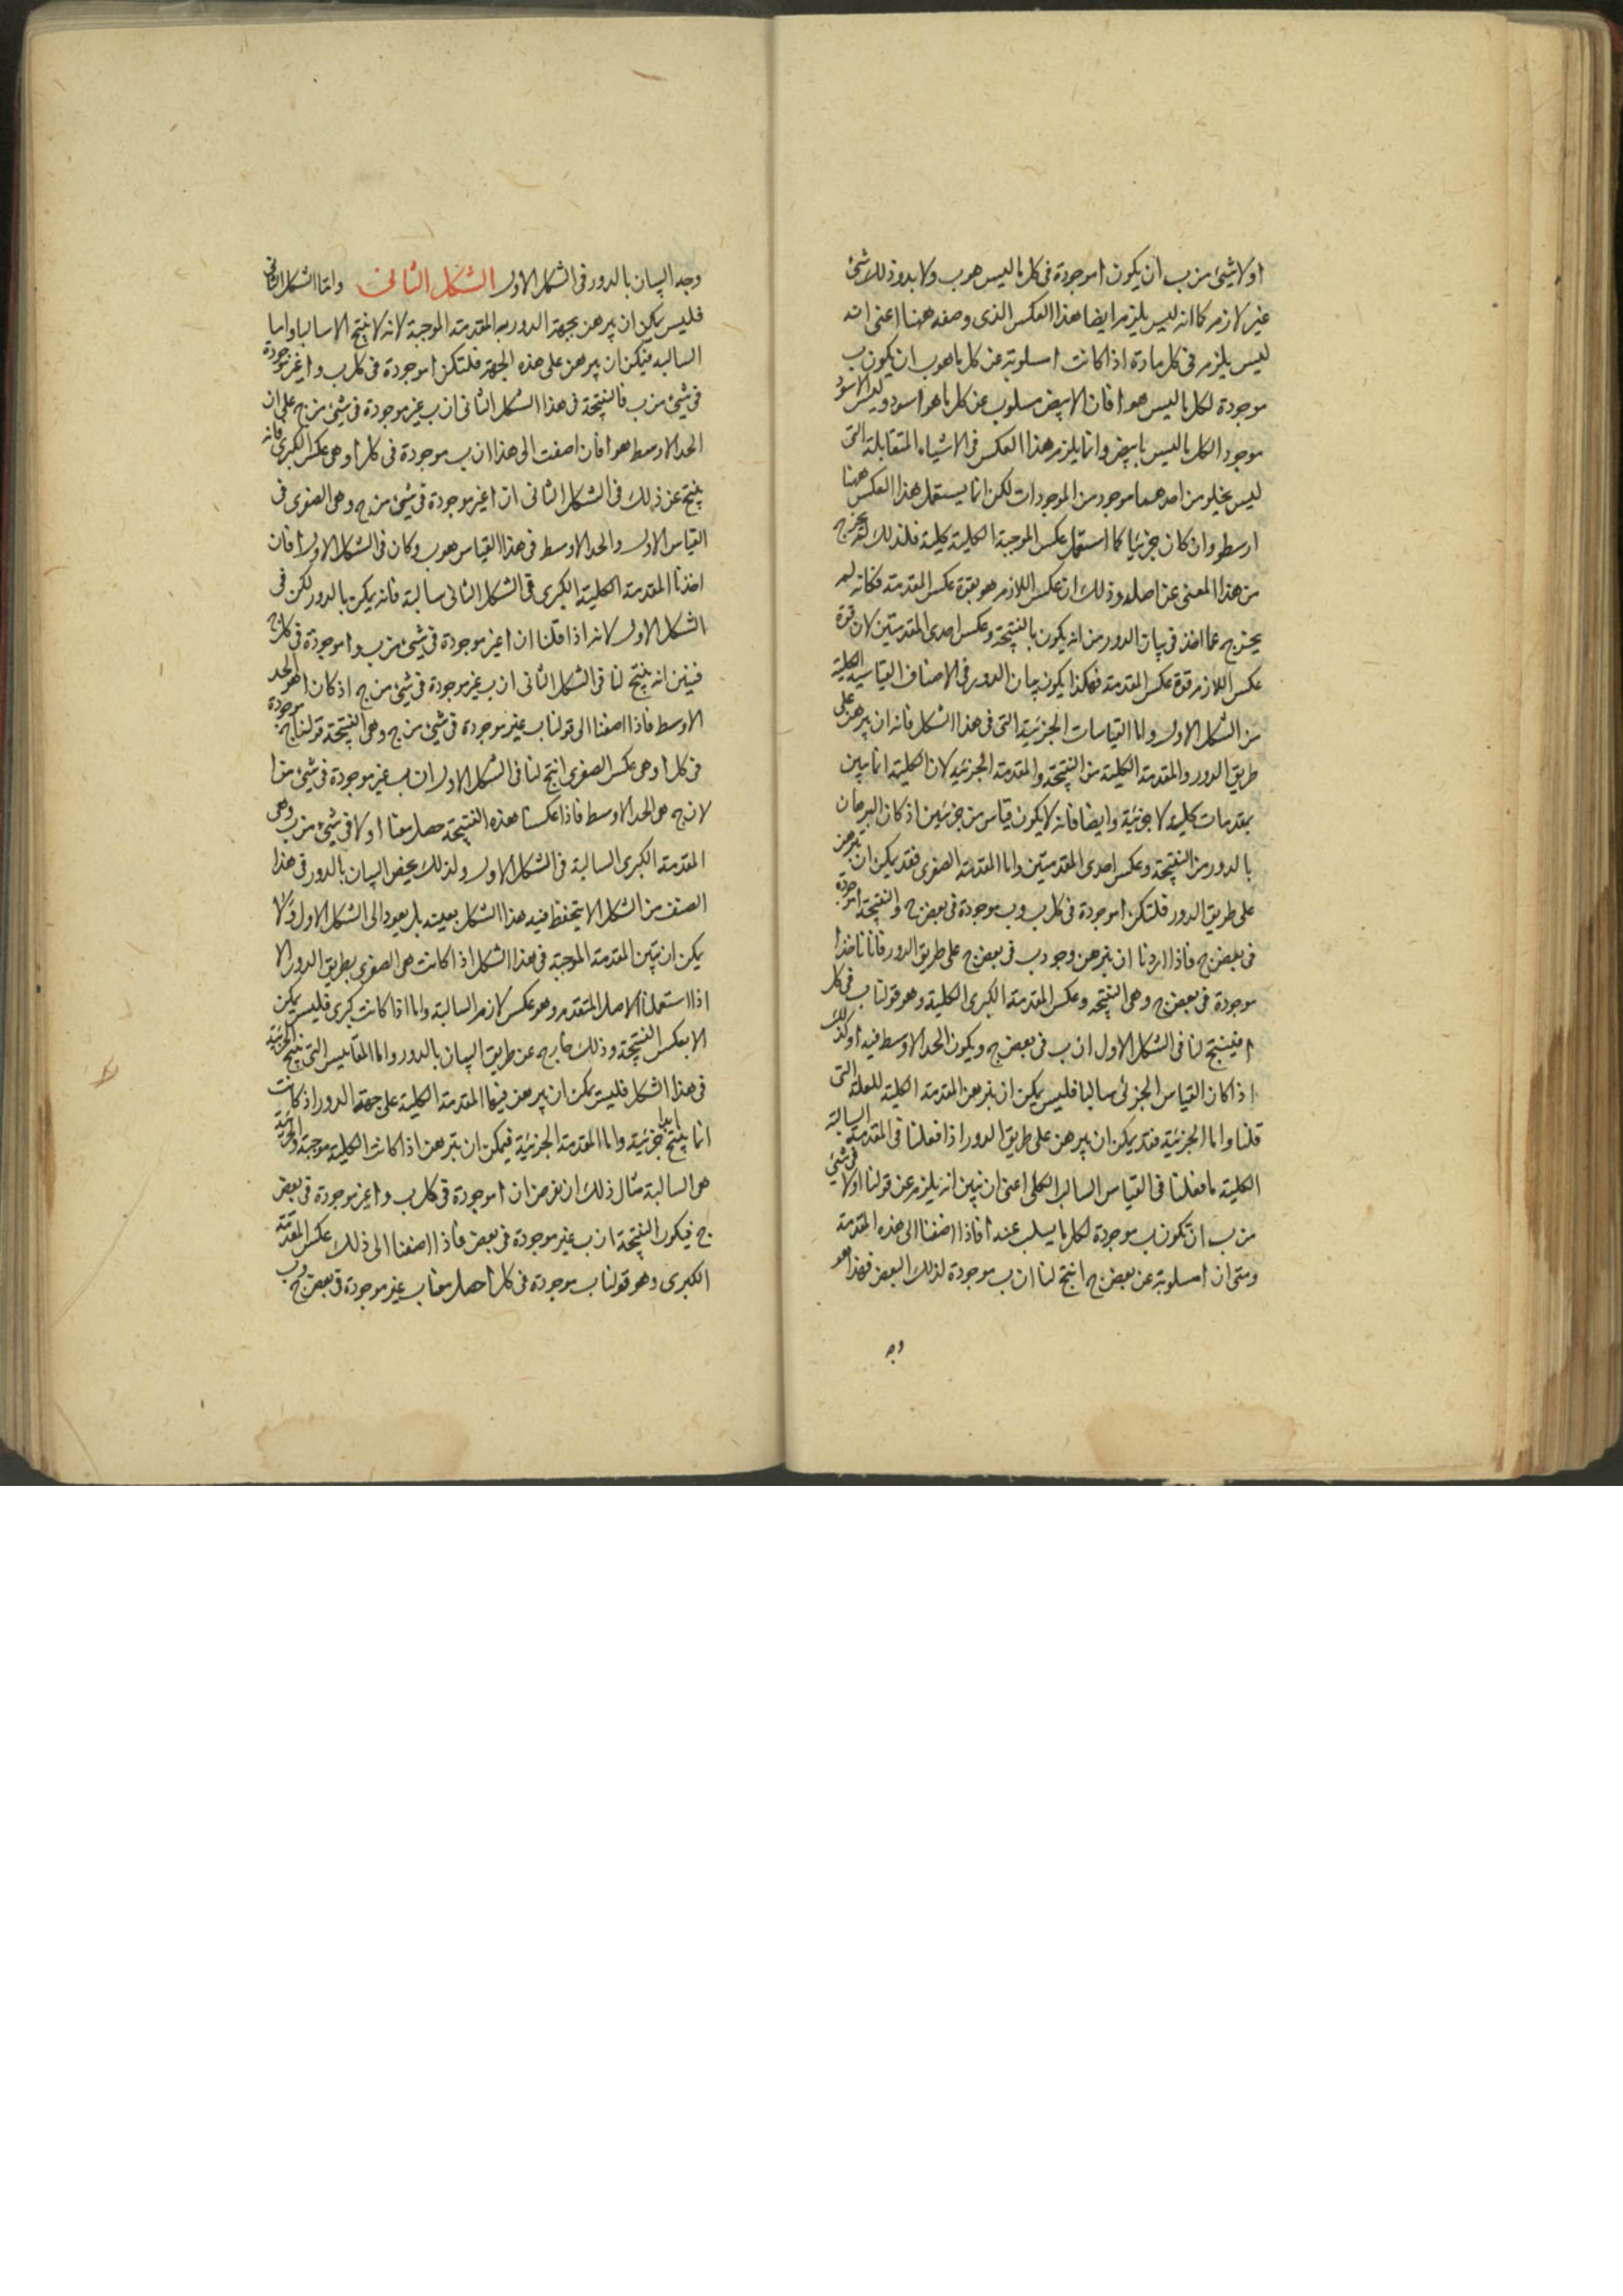 او لا شئ من ب ان يكون ا موجودة فى كل ما ليس هو ب ولا بد وذلك شئ
غير لازم كما انه ليس يلزم ايضا هذا العكس الذى وصفه ههنا اعنى انه
ليس يلزم فى كل مادة اذا كانت ا مسلوبة عن كل ما هو ب ان يكون ب
موجودة لكل ما ليس هو ا فان الابيض مسلوب عن كل ما هو اسود وليس الاسود
موجودا لكل ما ليس بابيض وانما يلزم هذا العكس فى الاشياء المتقابلة التى
ليس يخلو من احدهما موجود من الموجودات لكن انما يستعمل هذا العكس ههنا
ارسطو وان كان جزئيا كما استعمل عكس الموجبة الكلية كلية فلذلك لم يخرج
من هذا المعنى عن اصله وذلك ان عكس اللازم هو بقوة عكس المقدمة فكانه لم
يخرج عما اخذ فى بيان الدور من انه يكون بالنتيجة وعكس احدى المقدمتين لان قوة
عكس اللازم قوة عكس المقدمة فهكذا يكون بيان الدور فى الاصناف القياسية الكلية
من الشكل الاول واما القياسات الجزئية التى فى هذا الشكل فانه ان يبرهن على
طريق الدور والمقدمة الكلية من النتيجة والمقدمة الجزئية لان الكلية انما تبين
بمقدمات كلية لا جزئية وايضا فانه لا يكون قياس من جزئيتين اذ كان البرهان
بالدور من النتيجة وعكس احدى المقدمتين واما المقدمة الصغرى فقد يمكن ان تبرهن
على طريق الدور فلتكن ا موجودة فى كل ب وب موجودة فى بعض ج والنتيجة ا موجودة
فى بعض ج فاذا اردنا ان نبرهن وجود ب فى بعض ج على طريق الدور فانا ناخذ ا
موجودة فى بعض ج وهى النتيجة وعكس المقدمة الكبرى الكلية وهو قولنا ب فى كل
ا فينتج لنا فى الشكل الاول ان ب فى بعض ج ويكون الحد الاوسط فيه ا وكذلك
اذ كان القياس الجزئى سالبا فليس يمكن ان نبرهن المقدمة الكلية للعلة التى
قلنا واما الجزئية فقد يمكن ان تبرهن على طريق الدور اذا فعلنا فى المقدمة السالبة
الكلية ما فعلنا فى القياس السالب الكلى اعنى ان نبين انه يلزم عن قولنا ا ولا فى شئ
من ب ان تكون ب موجودة لكل ما يسلب عنه ا فاذا اضفنا الى هذه المقدمة
ومتى ان ا مسلوبة عن بعض ج انتج لنا ان ب موجودة لذلك البعض فهذا هو
وجه
وجه البيان بالدور فى الشكل الاول الشكل الثانى واما الشكل الثانى
فليس يمكن ان يبرهن بجهة الدور به المقدمة الموجبة لانه لا ينتج الا سالبا واما
السالبة فيمكن ان يبرهن على هذه الجهة فلتكن ا موجودة فى كل ب وا غير موجودة
فى شئ من ب فالنتيجة فى هذا الشكل الثانى ان ب غير موجودة فى شئ من ج على ان
الحد الاوسط هو ا فان اضفت الى هذا ان ب موجودة فى كل ا وهى عكس الكبرى فانه
ينتج عن ذلك فى الشكل الثانى ان ا غير موجودة فى شئ من ج وهى الصغرى فى
القياس الاول والحد الاوسط فى هذا القياس هو ب وكان فى الشكل الاول ا فان
اخذنا المقدمة الكلية الكبرى فى الشكل الثانى سالبة فانه يمكن بالدور لكن فى
الشكل الاول لانه اذا قلنا ان ا غير موجودة فى شئ من ب وا موجودة فى كل ج
فبين انه ينتج لنا فى الشكل الثانى ان ب غير موجودة فى شئ من ج اذ كان ا هو الحد
الاوسط فاذا اضفنا الى قولنا ب غير موجودة فى شئ من ج وهى النتيجة قولنا ج موجودة
فى كل ا وهى عكس الصغرى انتج لنا فى الشكل الاول ان ب غير موجودة فى شئ من ا
لان ج هو الحد الاوسط فاذا عكسنا هذه النتيجة حصل معنا ا ولا فى شئ من ب وهى
المقدمة الكبرى السالبة فى الشكل الاول ولذلك يخص البيان بالدور فى هذا
الصنف من الشكل الا يتحفظ فيه هذا الشكل بعينه بل يعود الى الشكل الاول ولا
يمكن ان تبين المقدمة الموجبة فى هذا الشكل اذا كانت هى الصغرى بطريق الدور الا
اذا استعملنا الاصل المتقدم وهو عكس لازم السالبة واما اذا كانت كبرى فليس يمكن
الا بعكس النتيجة وذلك خارج عن طريق البيان بالدور واما المقاييس التى تنتج الجزئية
فى هذا الشكل فليس يمكن ان يبرهن فيها المقدمة الكلية على جهة الدور اذ كانت
انما تنتج ابدا جزئية واما المقدمة الجزئية فيمكن ان تبرهن اذا كانت الكلية موجبة والجزئية
هى السالبة مثال ذلك ان نفرض ان ا موجودة فى كل ب وا غير موجودة فى بعض
ج فيكون النتيجة ان ب غير موجودة فى بعض فاذا اضفنا الى ذلك عكس المقدمة
الكبرى وهو قولنا ب موجودة فى كل ا حصل معنا ب غير موجودة فى بعض ج وب